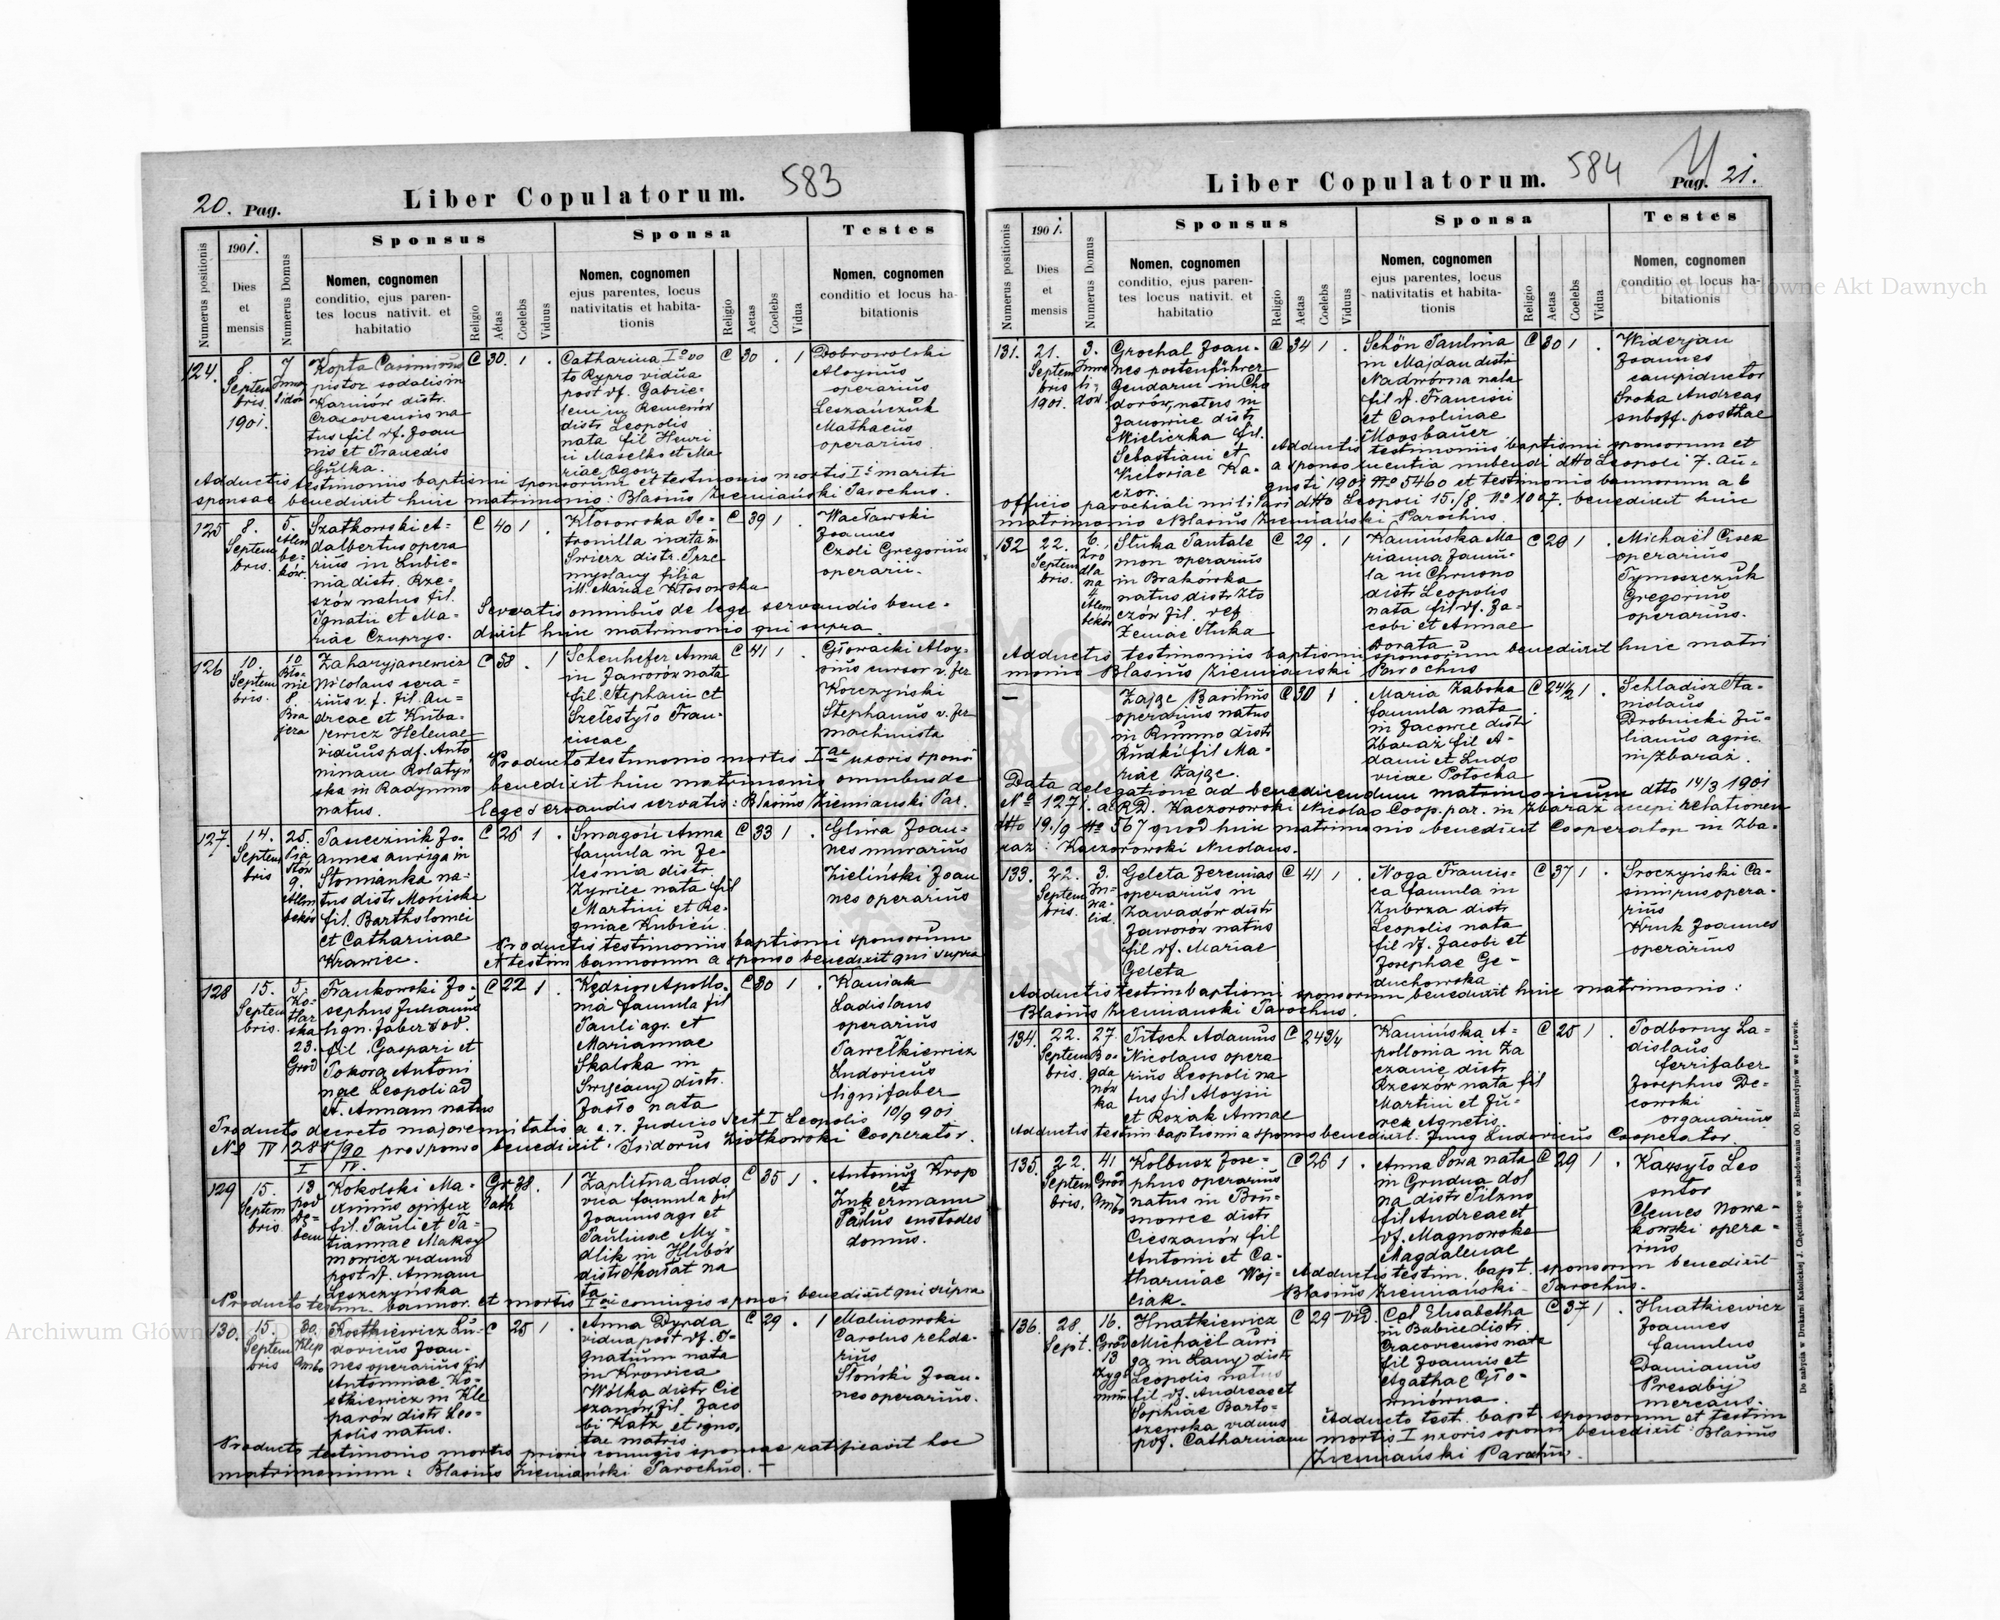 583
20. Pag.
Liber Copulatorum.
Numerus positionis
1901.
Dies
et
mensis
Numerus Domus
Sponsus
Nomen, cognomen
conditio, ejus paren-
tes locus nativit. et
habitatio
Religio
Aetas
Coelebs
Viduus
Sponsa
Nomen, cognomen
ejus parentes, locus
nativitatis et habita-
tionis
Religio
Aetas
Coelebs
Vidua
Testes
Nomen, cognomen
conditio et locus ha-
bitationis
124.
8.
Septem
bris
1901.
7
Inwa
lidów
Kopta Casimirus
pistor sodalis in
Karniów distr.
Cracoviensis na
tus fil df. Joan
nis et Praxedis
Gulka.
C 30. 1 .
Catharina I° vo
to Rypro vidua
post df. Gabrie-
lem in Remenów
distr Leopolis
nata fil Henri
ci Maselko et Ma-
riae Ogon
C 30 . 1
Dobrowolski
Aloysius
operarius
Leszańczuk
Mathaeus
operarius
Adductis testimoniis baptismi sponsorum et testimonio mortis I° mariti
sponsae benedixit huic matrimonio: Blasius Ziemiański Parochus.
125
8.
Septem
bris.
5.
Alem
be-
ków
Szatkowski A-
dalbertus opera
rius in Lubie-
nia distr. Rze-
szów natus fil.
Ignatii et Ma-
riae Czuprys.
C 40 1 .
Kłosowska Pe-
tronilla nata in
Swierz distr. Prze
myslany filia
Mariae Kłosowska
C 39 1 .
Wacławski
Joannes
Czoli Gregorius
operarii.
Servatis omnibus de lege servandis bene-
dixit huic matrimonio qui supra
126
10.
Septem
bris.
10
Bło-
nie
8.
Bra
jera
Zaharyjasiewicz
Nicolaus sera-
rius v. f. fil. An-
dreae et Kuba-
siewicz Helenae
viduus p. df. Anto
ninam Rolatyń
ska in Radymno
natus.
C 58 . 1
Schenhefer Anna
in Jaworów nata
fil. Stephani et
Szełestyło Fran-
ciscae
C 41 1 .
Głowacki Aloy-
sius cursor v. fer
Korczyński
Stephanus v. fer
machinista
Producto testimonio mortis Iae uxoris sponsi
benedixit huic matrimonio omnibus de
lege servandis servatis: Blasius Ziemiański Par.
127.
14.
Septem
bris
25.
Pia
stów
9.
Alem
beków
Panecznik Jo-
annes auriga in
Słomianka na-
tus distr Mościska
fil. Bartholomei
et Catharinae
Krawiec.
C 26 1 .
Smagoń Anna
famula in Je-
leśnia distr.
Żywiec nata fil
Martini et Re-
ginae Kubień.
C 33 1 .
Gliwa Joan-
nes murarius
Zieliński Joan
nes operarius
Productis testimoniis baptismi sponsorum
et testim bannorum a sponso benedixit qui supra
128
15.
Septem
bris.
5.
Ko-
tlar
ska
23.
Grod
Frankowski Jo-
sephus Julianus
lign. faber sod.
fil. Gaspari et
Pokora Antoni
nae Leopoli ad
St. Annam natus
C 22 1 .
Kędzior Apollo-
nia famula fil
Pauli agr. et
Mariannae
Skalska in
Święcany distr.
Jasło nata
C 30 1 .
Kaniak
Ladislaus
operarius
Pawełkiewicz
Ludovicus
lignifaber
Producto decreto majorennitatis a c. r. Judicio Sect I Leopolis 10/9 901
N° IV 288/90 pro sponso benedixit: Isidorus Ziółkowski Cooperator.
I IV.
129
15.
Septem
bris
13
pod
dę-
bem
Kokolski Ma-
ximus opifex
fil. Pauli et Ta-
tiannae Maksy
mowicz viduus
post df. Annam
Leszczyńska
Gr
Cath
38. . 1
Zaplitna Ludo
vica famula fil
Joannis agr et
Paulinae My-
dlik in Hlibów
distr Skałat na
ta
C 35 1 .
Antonius Krop
et
Inkermann
Paulus custodes
domus.
Producto testim. bannor. et mortis Iae coniugis sponsi benedixit qui supra
130.
15.
Septem
bris
30.
Klep
Kostkiewicz Lu-
dovicus Joan-
nes operarius fil
Antoninae Ko-
stkiewicz in Kle
parów distr Leo-
polis natus.
C 25 1 .
Anna Dynda
vidua post df. I-
gnatium nata
in Krowica
Wólka distr Cie
szanów, fil. Jaco
bi Katz et igno-
tae matris
C 29. . 1
Malinowski
Carolus rehda-
rius
Słonski Joan-
nes operarius.
Producto testimonio mortis prioris coniugis sponsae ratificavit hoc
matrimonium: Blasius Ziemiański Parochus.
584
Liber Copulatorum.
Pag. 21.
Numerus positionis
1901.
Dies
et
mensis
Numerus Domus
Sponsus
Nomen, cognomen
conditio, ejus paren-
tes locus nativit. et
habitatio
Religio
Aetas
Coelebs
Viduus
Sponsa
Nomen, cognomen
ejus parentes, locus
nativitatis et habita-
tionis
Religio
Aetas
Coelebs
Vidua
Testes
Nomen, cognomen
conditio et locus ha-
bitationis
131.
21.
Septem
bris
1901.
3.
Inwa
li-
dów.
Grochal Joan-
nes postenführer
Gendarm in Cho
dorów, natus in
Janowice distr
Wieliczka fil.
Sebastiani et
Victoriae Ka-
czor.
C 34 1 .
Schön Paulina
in Majdan distr
Nadwórna nata
fil df. Francisci
et Carolinae
Moosbauer
C 30 1 .
Widerjan
Joannes
campiductor
Sroka Andreas
suboff. posthae
Adductis testimoniis baptismi sponsorum et
a sponso licentia nubendi dtto Leopoli 7. Au-
gusti 1901 N° 5460 et testimonio bannorum a b
officio parochiali militari dtto Leopoli 15/8 N° 1007. benedixit huic
matrimonio Blasius Ziemiański Parochus.
132
22.
Septem
bris.
6.
Zró
dla
na
4
Alem
beków
Stuka Pantale
mon operarius
in Brakówka
natus distr Zło
czów fil. rel
Zemae Stuka
C 29 . 1
Kamińska Ma
rianna famu-
la in Chruono
distr Leopolis
nata fil df. Ja-
cobi et Annae
Dorata.
C 26 1 .
Michaël Cisek
operarius
Tymoszczuk
Gregorius
operarius.
Adductis testimoniis baptismi sponsorum benedixit huic matri
monio Blasius Ziemianski Parochus
—
Zając Basilius
operarius natus
in Rumno distr
Rudki fil Ma-
riae Zając.
C 30 1 .
Maria Zabska
famula nata
in Jacowce distr
Zbaraż fil A-
dami et Ludo
vicae Potocka
C 24½ 1 .
Schladisz Sta-
nislaus
Drobnicki Ju-
lianus agric
in Zbaraż.
Data delegatione ad benedicendum matrimonium dtto 14/3 1901
N° 1271. a RD. Kaczorowski Nicolao Coop. par. in Zbaraż accepi relationem
dtto 19./9 N° 567 quod huic matrimonio benedixit Cooperator in Zba-
raż: Kaczorowski Nicolaus.
133.
22.
Septem
bris.
3.
In-
wa
lid.
Geleta Jeremias
operarius in
Zawadów distr
Jaworów natus
fil df. Mariae
Geleta
C 41 1 .
Noga Francis-
ca famula in
Zubrza distr
Leopolis nata
fil df. Jacobi et
Josephae Ge-
duchowska
C 37 1 .
Sroczyński Ca-
simirus opera-
rius
Kruk Joannes
operarius
Adductis testim baptismi sponsorum benedixit huic matrimonio:
Blasius Ziemianski Parochus.
134.
22.
Septem
bris.
27.
Bo-
gda
nów
ka
Pitsch Adamus
Nicolaus opera
rius Leopoli na
tus fil Aloysii
et Roziak Annae
C 24¾
Kamińska A-
pollonia in Za
czanie distr
Rzeszów nata fil
Martini et Ju-
rek Agnetis.
C 25 1 .
Podborny La-
dislaus
ferrifaber
Josephus De-
cowski
organarius
Adductis testim baptismi a sponso benedixit: Jung Ludovicus Cooperator
135.
22.
Septem
bris.
41
Gród
Kolbusz Jose-
phus operarius
natus in Bru-
snowce distr
Cieszanów fil
Antonii et Ca-
tharinae Woj-
ciak.
C 26 1 .
Anna Sowa nata
in Grudna dol
na distr Pilzno
fil Andreae et
df. Magnowska
Magdalenae
C 29 1 .
Karsyło Leo
sutor
Clemes Nowa-
kowski opera-
rius
Adductis testim. bapt. sponsorum benedixit
Blasius Ziemiański Parochus.
136.
28.
Sept.
16.
Gród
13
Zyg
mun
Hnatkiewicz
Michaël auri
ga in Łany distr
Leopolis natus
fil df. Andreae et
Sophiae Barto-
szewska viduus
p. df. Catharinam
C 29 Vid.
Cal Elisabetha
in Babice distr
Cracoviensis nata
fil Joannis et
Agathae Gło-
wniówna.
C 37 1 .
Hnatkiewicz
Joannes
famulus
Damianus
Presdbij
mercans.
Adducto test. bapt sponsorum et testim
mortis I uxoris sponsi benedixit: Blasius
Ziemiański Parochus.
Do nabycia w Drukarni Katolickiej J. Chęcińskiego w zabudowaniu OO. Bernardynów we Lwowie.
Archiwum Główne Akt Dawnych